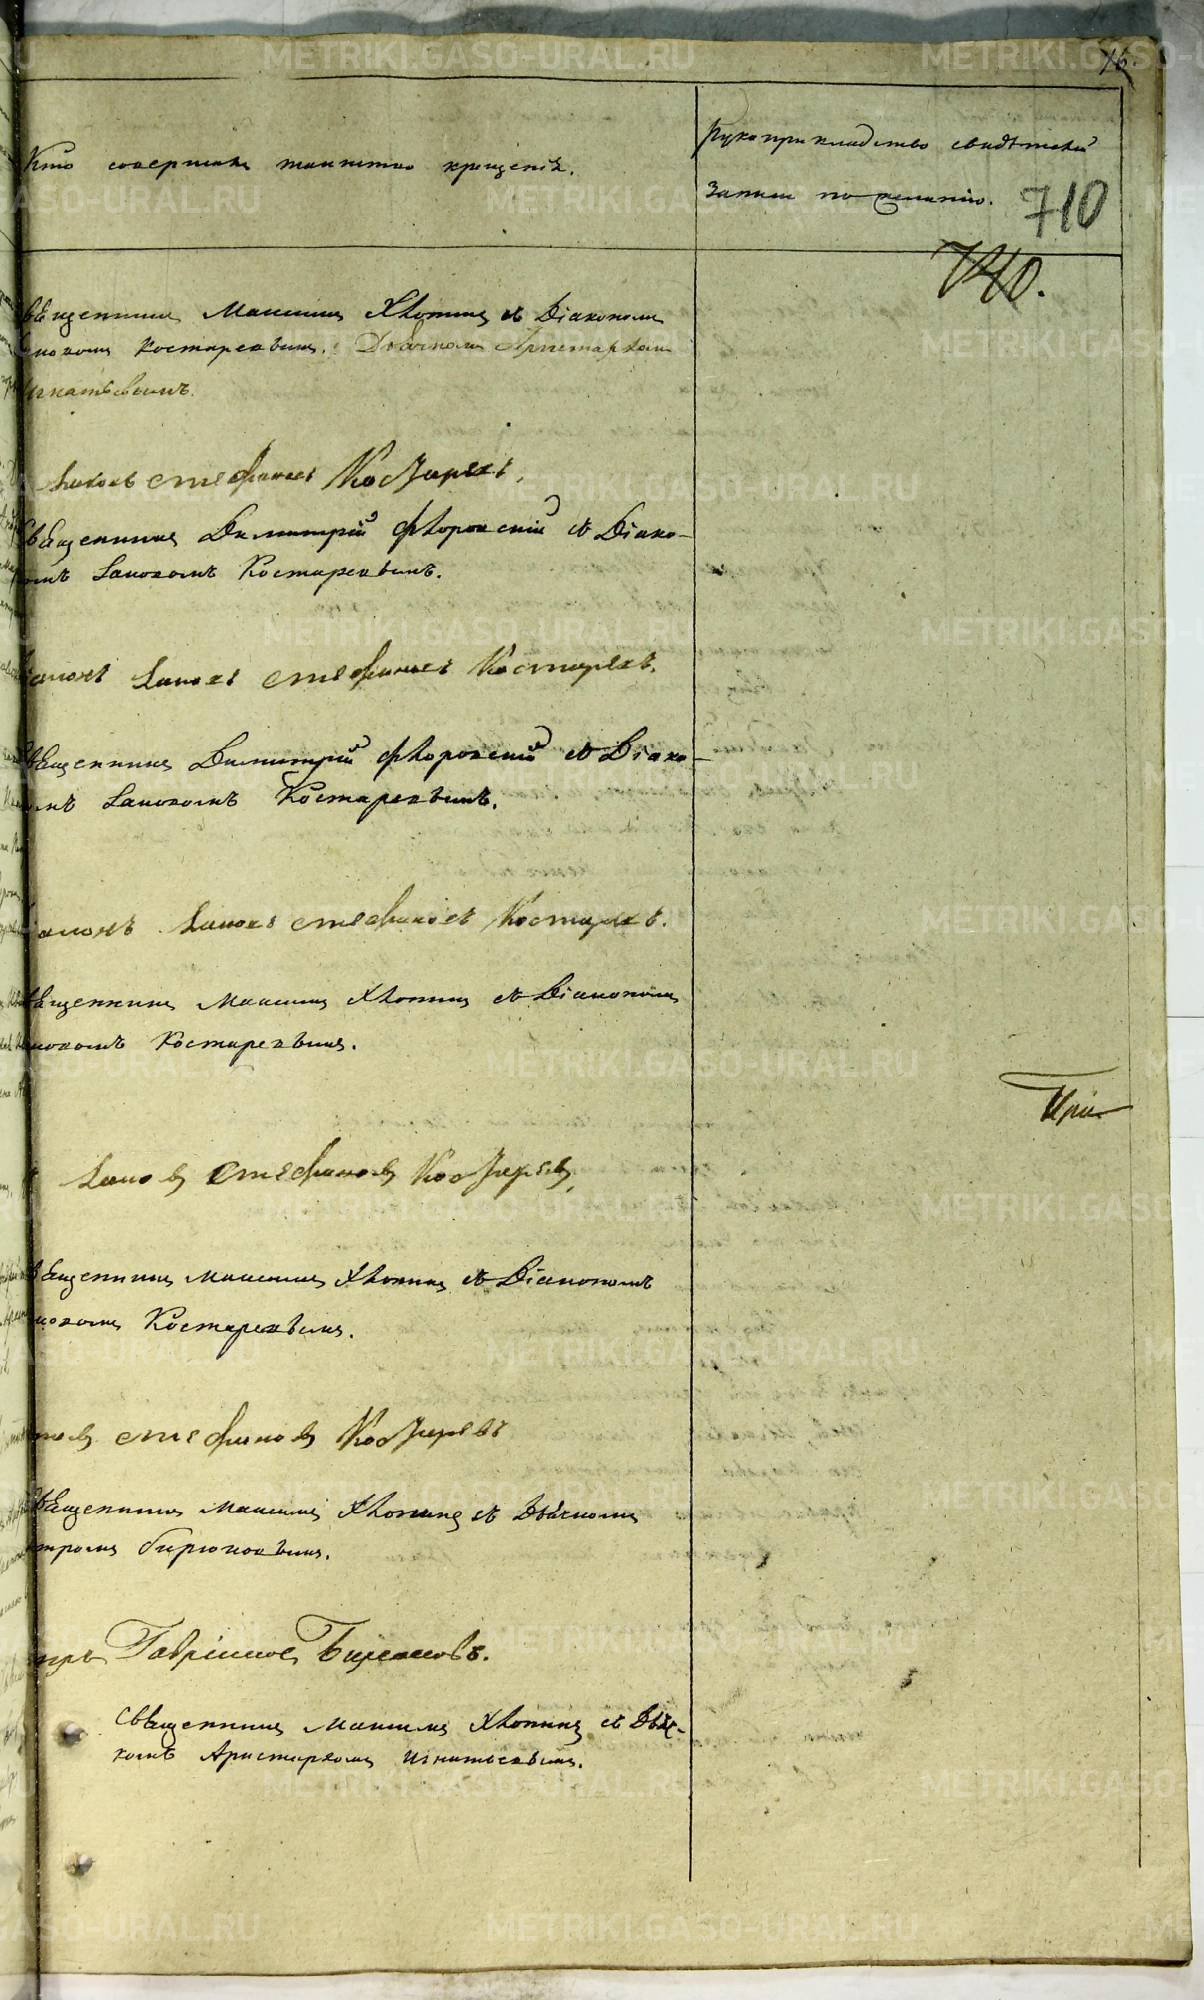 76.
Кто совершалъ таинство крещенія.
Рукоприкладство свидѣтелей
записи по желанію.
710
710.
вященникъ Максимъ Хлопинъ съ Діакономъ
Іаковомъ Костаревымъ. Дьячкомъ Аристархомъ
Игнатьевымъ.
Іаковъ Стефановъ Костаревъ.
Священникъ Димитрій Флоровскій съ Діако-
номъ Іаковомъ Костаревымъ.
Діаконъ Іаковъ Стефановъ Костаревъ.
Священникъ Димитрій Флоровскій съ Діако-
номъ Іаковомъ Костаревымъ.
Діаконъ Іаковъ Стефановъ Костаревъ.
Священникъ Максимъ Хлопинъ съ Діакономъ
Іаковомъ Костаревымъ.
При
Іаковъ Стефановъ Костаревъ
Священникъ Максимъ Хлопинъ съ Діакономъ
Іаковомъ Костаревымъ.
Іаковъ Стефановъ Костаревъ
Священникъ Максимъ Хлопинъ съ Дьячкомъ
Петромъ Бирюковымъ.
Петръ Гавріиловъ Бирюковъ.
Священникъ Максимъ Хлопинъ съ Дьяч-
комъ Аристархомъ Игнатьевымъ.
METRIKI.GASO-URAL.RU